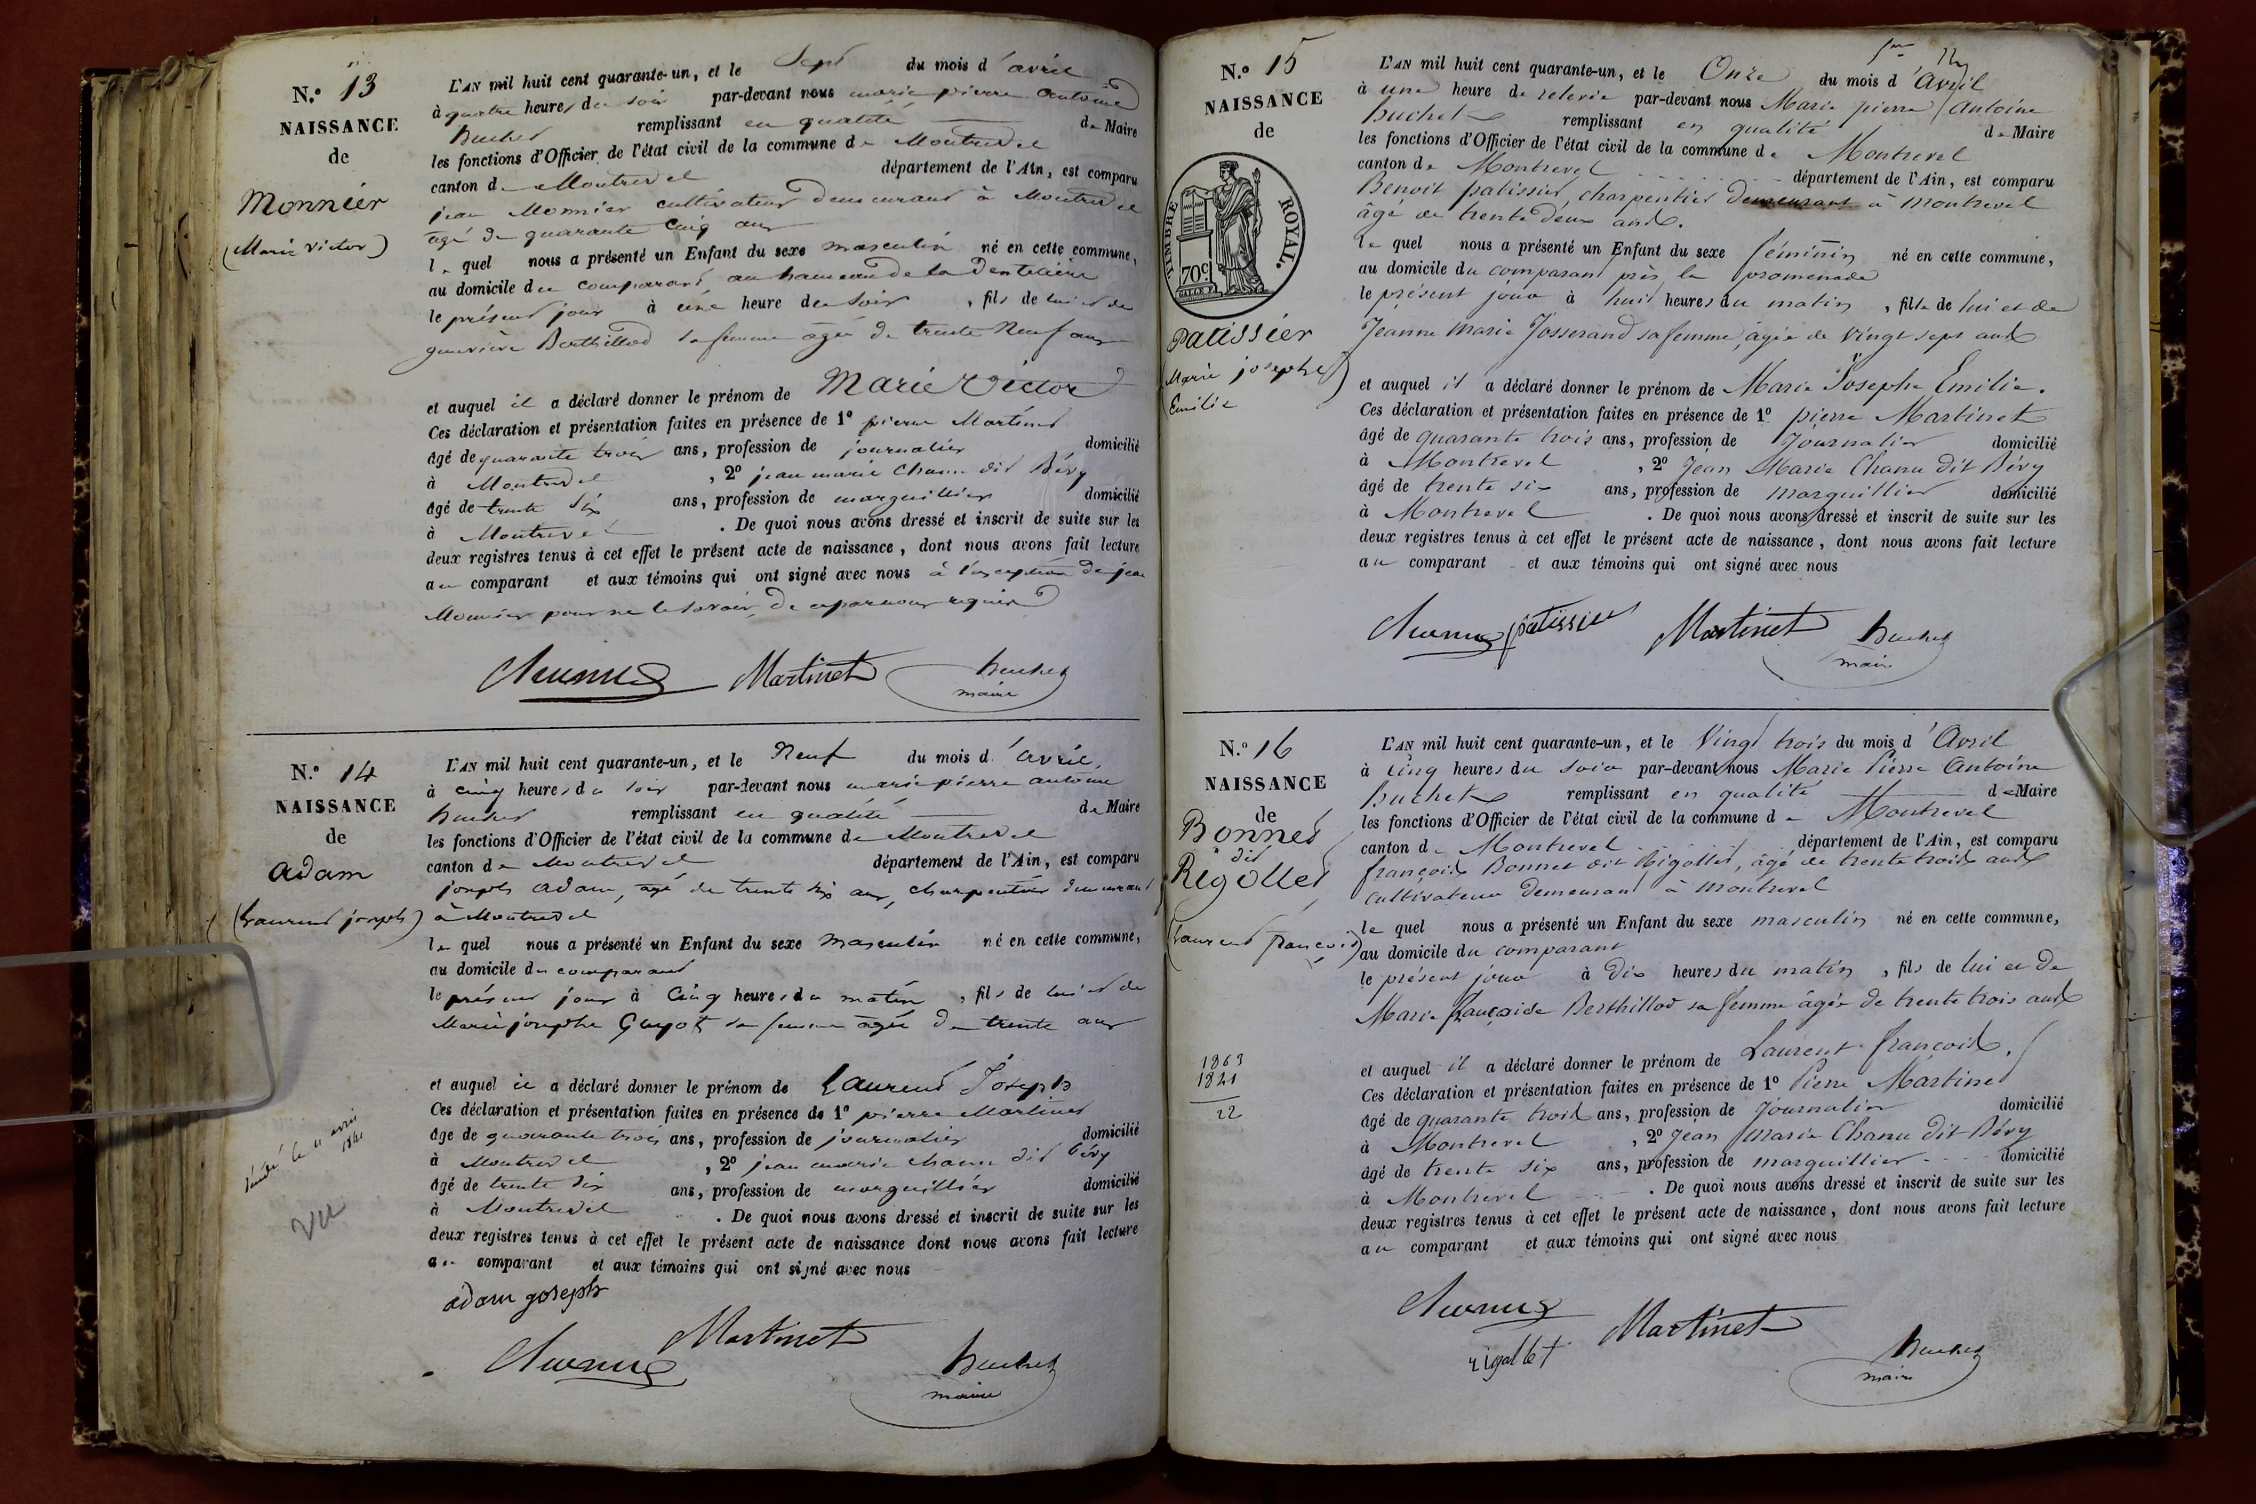 N.º 13
NAISSANCE
de
Monnier
(Marie Victor)
L'AN mil huit cent quarante-un, et le Sept du mois d'avril
à quatre heures du soir par-devant nous marie pierre antoine
Buchet remplissant en qualité de Maire
les fonctions d'Officier de l'état civil de la commune de Montrevel
canton de Montrevel département de l'Ain, est comparu
jean Monnier cultivateur demeurant à Montrevel
agé de quarante cinq ans
lequel nous a présenté un Enfant du sexe masculin né en cette commune,
au domicile du comparant au hameau de la
le présent jour à une heure du soir, fils de lui et de
genevieve Berthillod sa femme agée de trente neuf ans
et auquel il a déclaré donner le prénom de Marie Victor
Ces déclaration et présentation faites en présence de 1º pierre Martinet
âgé de quarante trois ans, profession de journalier domicilié
à Montrevel, 2º jean marie Chanu dit Bévy
âgé de trente six ans, profession de marguillier domicilié
à Montrevel. De quoi nous avons dressé et inscrit de suite sur les
deux registres tenus à cet effet le présent acte de naissance, dont nous avons fait lecture
au comparant et aux témoins qui ont signé avec nous à l'exception de jean
Monnier pour ne le savoir de ce par nous requis
Chanu Martinet Buchet
maire
N.º 14
NAISSANCE
de
adam
(Laurent joseph)
décédé le 11 avril
1841
Vu
L'AN mil huit cent quarante-un, et le Neuf du mois d'avril,
à cinq heures du soir par-devant nous marie pierre antoine
Buchet remplissant en qualité de Maire
les fonctions d'Officier de l'état civil de la commune de Montrevel
canton de Montrevel département de l'Ain, est comparu
joseph adam, agé de trente six ans, charpentier demeurant
à Montrevel
lequel nous a présenté un Enfant du sexe masculin né en cette commune,
au domicile du comparant
le présent jour à cinq heures du matin, fils de lui et de
Marie josephe Guyot sa femme agée de trente ans
et auquel il a déclaré donner le prénom de Laurent Joseph
Ces déclaration et présentation faites en présence de 1º pierre Martinet
âge de quarante trois ans, profession de journalier domicilié
à Montrevel, 2º jean marie chanu dit Bévy
âgé de trente six ans, profession de marguillier domicilié
à Montrevel. De quoi nous avons dressé et inscrit de suite sur les
deux registres tenus à cet effet le présent acte de naissance dont nous avons fait lecture
au comparant et aux témoins qui ont signé avec nous
adam joseph
Martinet
Chanu Buchet
maire
N.º 15
NAISSANCE
de
TIMBRE ROYAL.
70c.
Patissier
(Marie josephe)
Emilie
L'AN mil huit cent quarante-un, et le Onze du mois d'Avril
à une heure de relevée par-devant nous Marie pierre Antoine
Buchet remplissant en qualité de Maire
les fonctions d'Officier de l'état civil de la commune de Montrevel
canton de Montrevel département de l'Ain, est comparu
Benoit patissier charpentier demeurant à Montrevel
âgé de trente deux ans.
lequel nous a présenté un Enfant du sexe féminin né en cette commune,
au domicile du comparant près la promenade
le présent jour à huit heures du matin, fille de lui et de
Jeanne Marie Josserand sa femme, âgée de vingt sept ans
et auquel il a déclaré donner le prénom de Marie Josephe Emilie.
Ces déclaration et présentation faites en présence de 1º pierre Martinet
âgé de quarante trois ans, profession de Journalier domicilié
à Montrevel, 2º Jean Marie Chanu dit Bévy
âgé de trente six ans, profession de marguillier domicilié
à Montrevel. De quoi nous avons dressé et inscrit de suite sur les
deux registres tenus à cet effet le présent acte de naissance, dont nous avons fait lecture
au comparant et aux témoins qui ont signé avec nous
Chanu patissier Martinet Buchet
maire
N.º 16
NAISSANCE
de
Bonnet
dit
Rigollet
(Laurent françois)
1863
1841
22
L'AN mil huit cent quarante-un, et le Vingt trois du mois d'Avril
à cinq heures du soir par-devant nous Marie Pierre Antoine
Buchet remplissant en qualité de Maire
les fonctions d'Officier de l'état civil de la commune de Montrevel
canton de Montrevel département de l'Ain, est comparu
françois Bonnet dit Rigollet, âgé de trente trois ans
cultivateur demeurant à Montrevel
lequel nous a présenté un Enfant du sexe masculin né en cette commune,
au domicile du comparant
le présent jour à dix heures du matin, fils de lui et de
Marie françoise Berthillod sa femme âgée de trente trois ans
et auquel il a déclaré donner le prénom de Laurent françois.
Ces déclaration et présentation faites en présence de 1º Pierre Martinet
âgé de quarante trois ans, profession de Journalier domicilié
à Montrevel, 2º Jean Marie Chanu dit Bévy
âgé de trente six ans, profession de marguillier domicilié
à Montrevel. De quoi nous avons dressé et inscrit de suite sur les
deux registres tenus à cet effet le présent acte de naissance, dont nous avons fait lecture
au comparant et aux témoins qui ont signé avec nous
Chanu
rigollet Martinet Buchet
maire